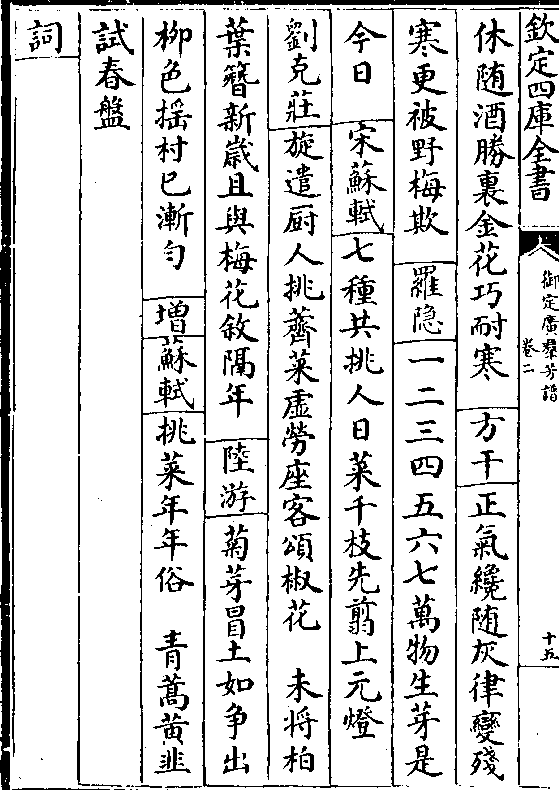 欽定四庫全書
御定廣羣芳譜
卷二
十五
休随酒勝裏金花巧耐寒 方干 正氣纔随灰律變殘
寒更被野梅欺 羅隐 一二三四五六七萬物生芽是
今日 宋蘇軾 七種共挑人日菜千枝先翦上元燈
劉克莊 旋遣厨人挑薺菜虛勞座客頌椒花 未将柏
葉簪新歲且與梅花敘隔年 陸游 菊芽冒土如争出
柳色揺村已漸勻 增蘇軾 挑菜年年俗 青蒿黄韭
試春盤
詞